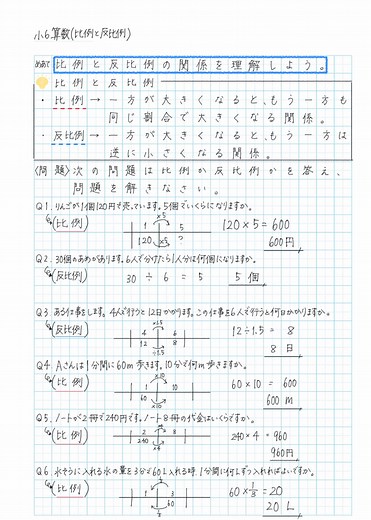 小6 算数(比例と反比例)
めあて 比例と反比例の関係を理解しよう。
比例と反比例
・比例→一方が大きくなると、もう一方も
同じ割合で大きくなる関係。
・反比例→一方が大きくなると、もう一方は
逆に小さくなる関係。
〈問題〉次の問題は比例か反比例かを答え、
問題を解きなさい。
Q1. りんごが1個120円で売っています。5個でいくらになりますか。
(比例) 1 5 ×5 120 ? ×5 120×5=600
600円
Q2. 30個のあめがあります。6人で分けたら1人分は何個になりますか。
(反比例) 30÷6=5 5個
Q3. ある仕事をします。4人で行うと12日かかります。この仕事を6人で行うと何日かかりますか。
(反比例) ×1.5 4 6 12 8 ÷1.5 12÷1.5=8
8日
Q4. Aさんは1分間に60m歩きます。10分で何m歩きますか。
(比例) ×10 1 10 60 ×10 60×10=600
600m
Q5. ノートが2冊で240円です。ノート8冊の代金はいくらですか。
(比例) 2 8 240 ×4 240×4=960
960円
Q6. 水そうに入れる水の量を3分で60L入れる時、1分間に何Lずつ入れればよいですか。
(比例) 1 3 60 60×1/3=20
20L